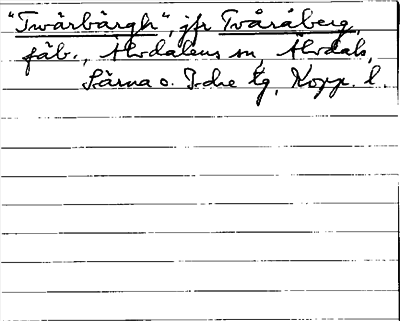 "Twårbårgh", jfr Tvåråberg,
fäb., Älvdalens sn, Älvdals,
Särna o. Idre tg, Kopp. l.